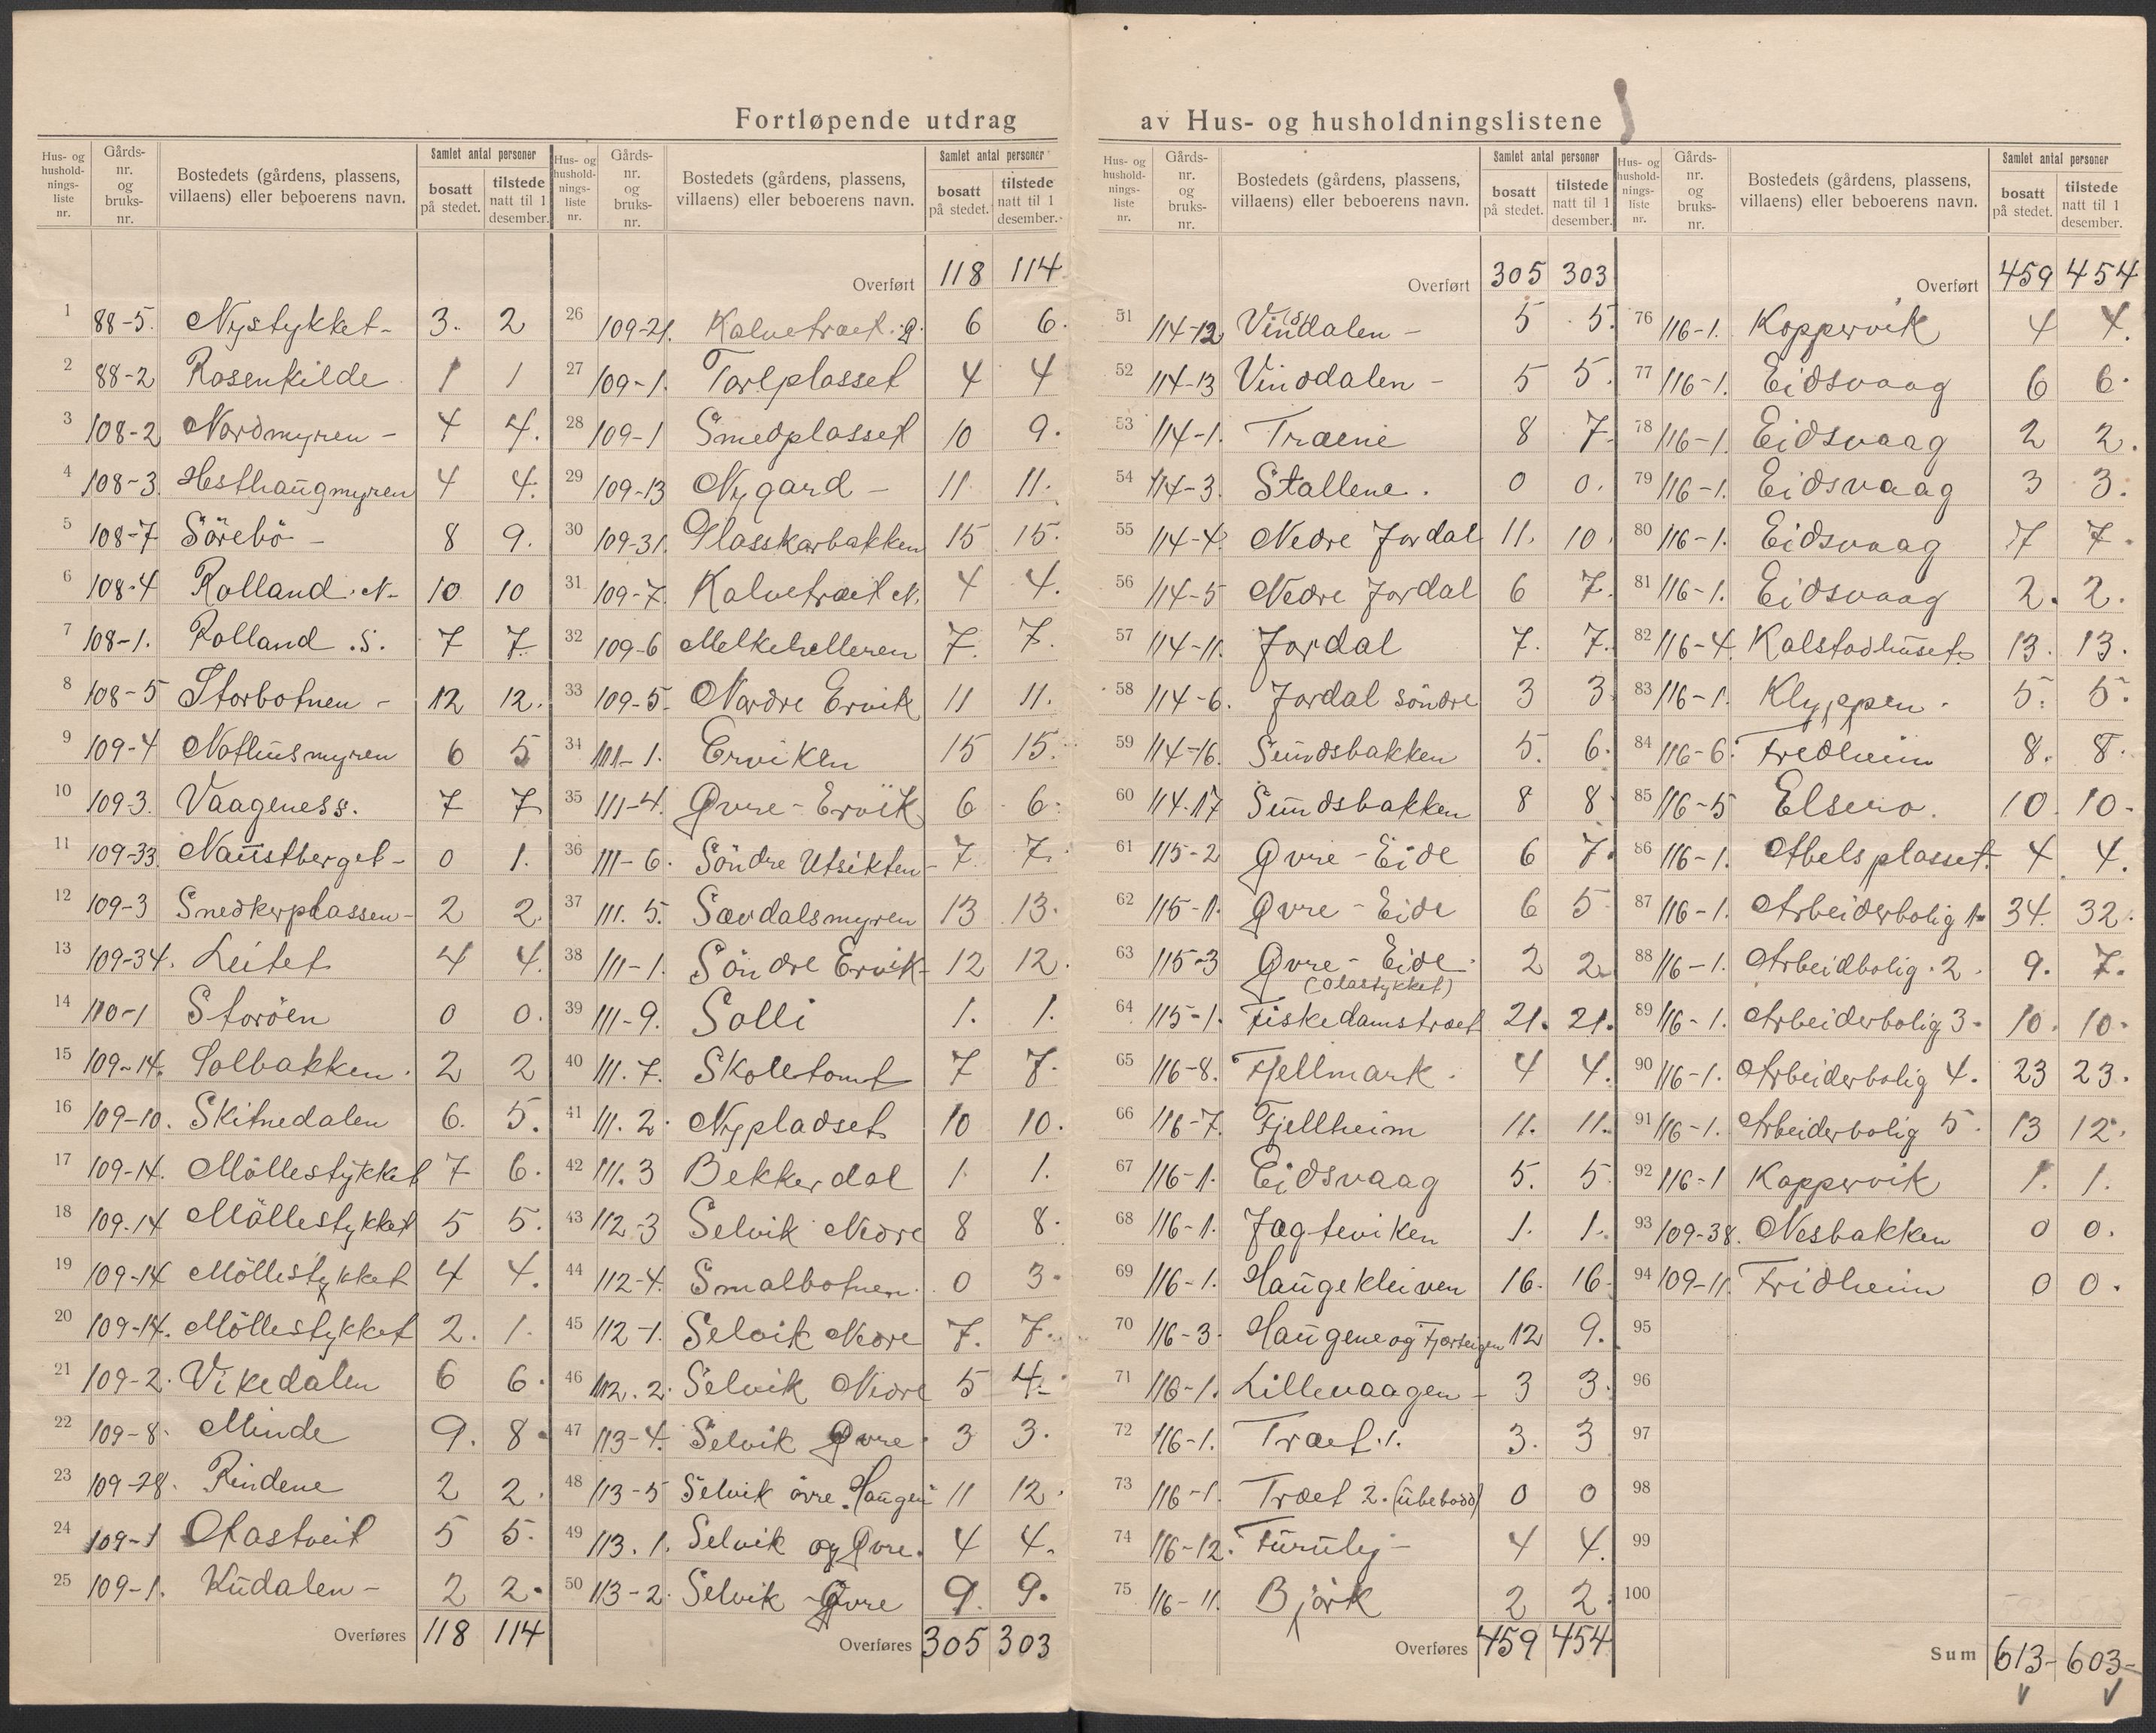 Fortløpende utdrag av Hus- og husholdningslistene
Hus- og husholdningsliste nr. Gårds-nr. og bruks-nr. Bostedets (gårdens, plassens, villaens) eller beboerens navn. Samlet antal personer bosatt på stedet. tilstede natt til 1 desember.
1 88-5. Nystykket- 3. 2
2 88-2 Rosenkilde 1 1
3 108-2 Nordmyren - 4 4.
4 108-3. Hesthaugmyren 4 4.
5 108-7 Sörebö - 8 9.
6 108-4 Rolland. N- 10 10
7 108-1. Rolland .S. 7 7
8 108-5 Storbotnen - 12 12.
9 109-4 Nothusmyren 6 5
10 109-3. Vaageness. 7 7
11 109-33. Naustberget- 0 1.
12 109-3 Snedkerplassen- 2 2.
13 109-34. Leitet 4 4.
14 110-1 Storöen 0 0.
15 109-14. Solbakken. 2 2
16 109-10. Skitnedalen 6. 5.
17 109-14. Möllestykket 7 6.
18 109-14 Möllestykket 5 5.
19 109-14 Möllestykket 4 4.
20 109-14. Möllestykket 2. 1.
21 109-2. Vikedalen 6 6.
22 109-8. Minde 9. 8.
23 109-28. Rindene 2 2.
24 109-1 Aastveit 5 5.
25 109-1. Kudalen - 2 2.
Overføres 118 114
Hus- og husholdningsliste nr. Gårds-nr. og bruks-nr. Bostedets (gårdens, plassens, villaens) eller beboerens navn. Samlet antal personer bosatt på stedet. tilstede natt til 1 desember.
Overført 118 114
26 109-21. Kalvetræet. 6 6.
27 109-1. Torlplasset 4 4
28 109-1 Smedplasset 10 9.
29 109-13 Nygard - 11 11.
30 109-31. Glasskarbakken 15 15.
31 109-7. Kalvetræet N. 4 4.
32 109-6 Melkehelleren 7. 7.
33 109-5- Nordre Ervik 11 11.
34 111-1. Erviken 15 15.
35 111-4. Øvre - Ervik 6 6.
36 111-6. Söndre Utsikten- 7. 7.
37 111.5. Sævdalsmyren 13 13.
38 111-1. Söndre Ervik- 12 12.
39 111-9. Solli 1. 1.
40 111.7. Skoletomt 7 7.
41 111.2. Nypladset 10 10.
42 111.3 Bekkerdal 1. 1.
43 112-3 Selvik Nedre 8 8.
44 112-4. Smalbotnen. 0 3.
45 112-1. Selvik Nedre 7. 7.
46 112.2. Selvik Nedre 5 4.
47 113-4. Selvik Øvre. 3 3.
48 113-5 Selvik övre. Haugen 11 12.
49 113.1. Selvik og Øvre. 4 4.
50 113-2. Selvik - Øvre 9. 9.
Overføres 305 303
Hus- og husholdningsliste nr. Gårds-nr. og bruks-nr. Bostedets (gårdens, plassens, villaens) eller beboerens navn. Samlet antal personer bosatt på stedet. tilstede natt til 1 desember.
Overført 305 303
51 114-12 Vindalen - 5 5.
52 114-13 Vindalen - 5 5.
53 114-1. Træene 8 7.
54 114-3. Stallene. 0 0.
55 114-4. Nedre Jordal 11. 10
56 114-5 Nedre Jordal 6 7.
57 114-11. Jordal 7. 7.
58 114-6. Jordal söndre 3 3
59 114-16. Sundsbakken 5. 6.
60 114.17 Sundsbakken 8 8
61 115-2 Øvre - Eide 6 7.
62 115-1. Øvre - Eide 6 5
63 115-3 Øvre - Eide. 2 2.
(Olastykket)
64 115-1. Fiskedamstræet 21. 21.
65 116-8. Fjellmark. 4 4.
66 116-7. Fjellheim 11. 11.
67 116-1. Eidsvaag 5. 5
68 116-1. Jægteviken 1. 1.
69 116-1. Haugekleiven 16. 16.
70 116-3. Haugene og 12 9.
71 116-1. Lillevaagen - 3 3.
72 116-1. Træet.1. 3. 3
73 116-1. Træet 2. (ubebodd) 0 0
74 116-12. Furuly - 4 4.
75 116-11. Björk 2 2.
Overføres 459 454
Hus- og husholdningsliste nr. Gårds-nr. og bruks-nr. Bostedets (gårdens, plassens, villaens) eller beboerens navn. Samlet antal personer bosatt på stedet. tilstede natt til 1 desember.
Overført 459 454
76 116-1. Koppervik 4 4.
77 116-1. Eidsvaag 6 6.
78 116-1. Eidsvaag 2 2.
79 116-1. Eidsvaag 3 3.
80 116-1. Eidsvaag 7 7.
81 116-1. Eidsvaag 2. 2.
82 116-4. Kalstadhuset 13. 13.
83 116-1. Klyppen. 5. 5.
84 116-6. Fredheim 8. 8.
85 116-5 Elsero. 10. 10.
86 116-1. Abelsplasset. 4 4.
87 116-1. Arbeiderbolig 1. 34. 32.
88 116-1. Arbeidbolig. 2. 9. 7.
89 116-1. Arbeiderbolig 3. 10. 10.
90 116-1. Arbeiderbolig 4. 23 23.
91 116-1. Arbeiderbolig 5. 13 12.
92 116-1 Koppervik 1. 1.
93 109-38. Nesbakken 0 0.
94 109-11. Fridheim 0 0.
95
96
97
98
99
100
Sum 613- 603-